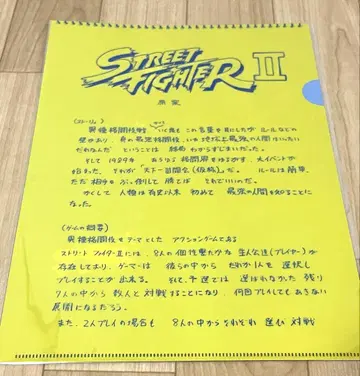 STREET
FIGHTER II
原案
(ストーリー)
異種格闘技戦 いく度もこの言葉を耳にしたが ルールなどの
壁があり、真の最強格闘技、いや地球上最強の人間はいったい
だれなんだ ということは 結局わからずじまいだった。
そして 1989年 あらゆる格闘界をゆるがす、大イベントが
始まった、それが「天下一武闘会(仮称)」だ。 ルールは簡単、
ただ相手をぶっ倒して 勝てば それでいいのだ。
かくして 人類は有史以来 初めて 最強の人間を知ることに
なった。
(ゲームの概要)
異種格闘技をテーマとした アクションゲームである
ストリートファイターIIには、8人の個性豊かな主人公達(プレイヤー)が
存在しており、ゲーマーは 彼らの中から だれか1人を選択し
プレイすることが出来る。 そして、予選では 選ばれなかった残り
7人の中から 数人と対戦することになり、何回プレイしてもあきない
展開になるだろう。
また、2人プレイの場合も 8人の中からそれぞれ 選び 対戦